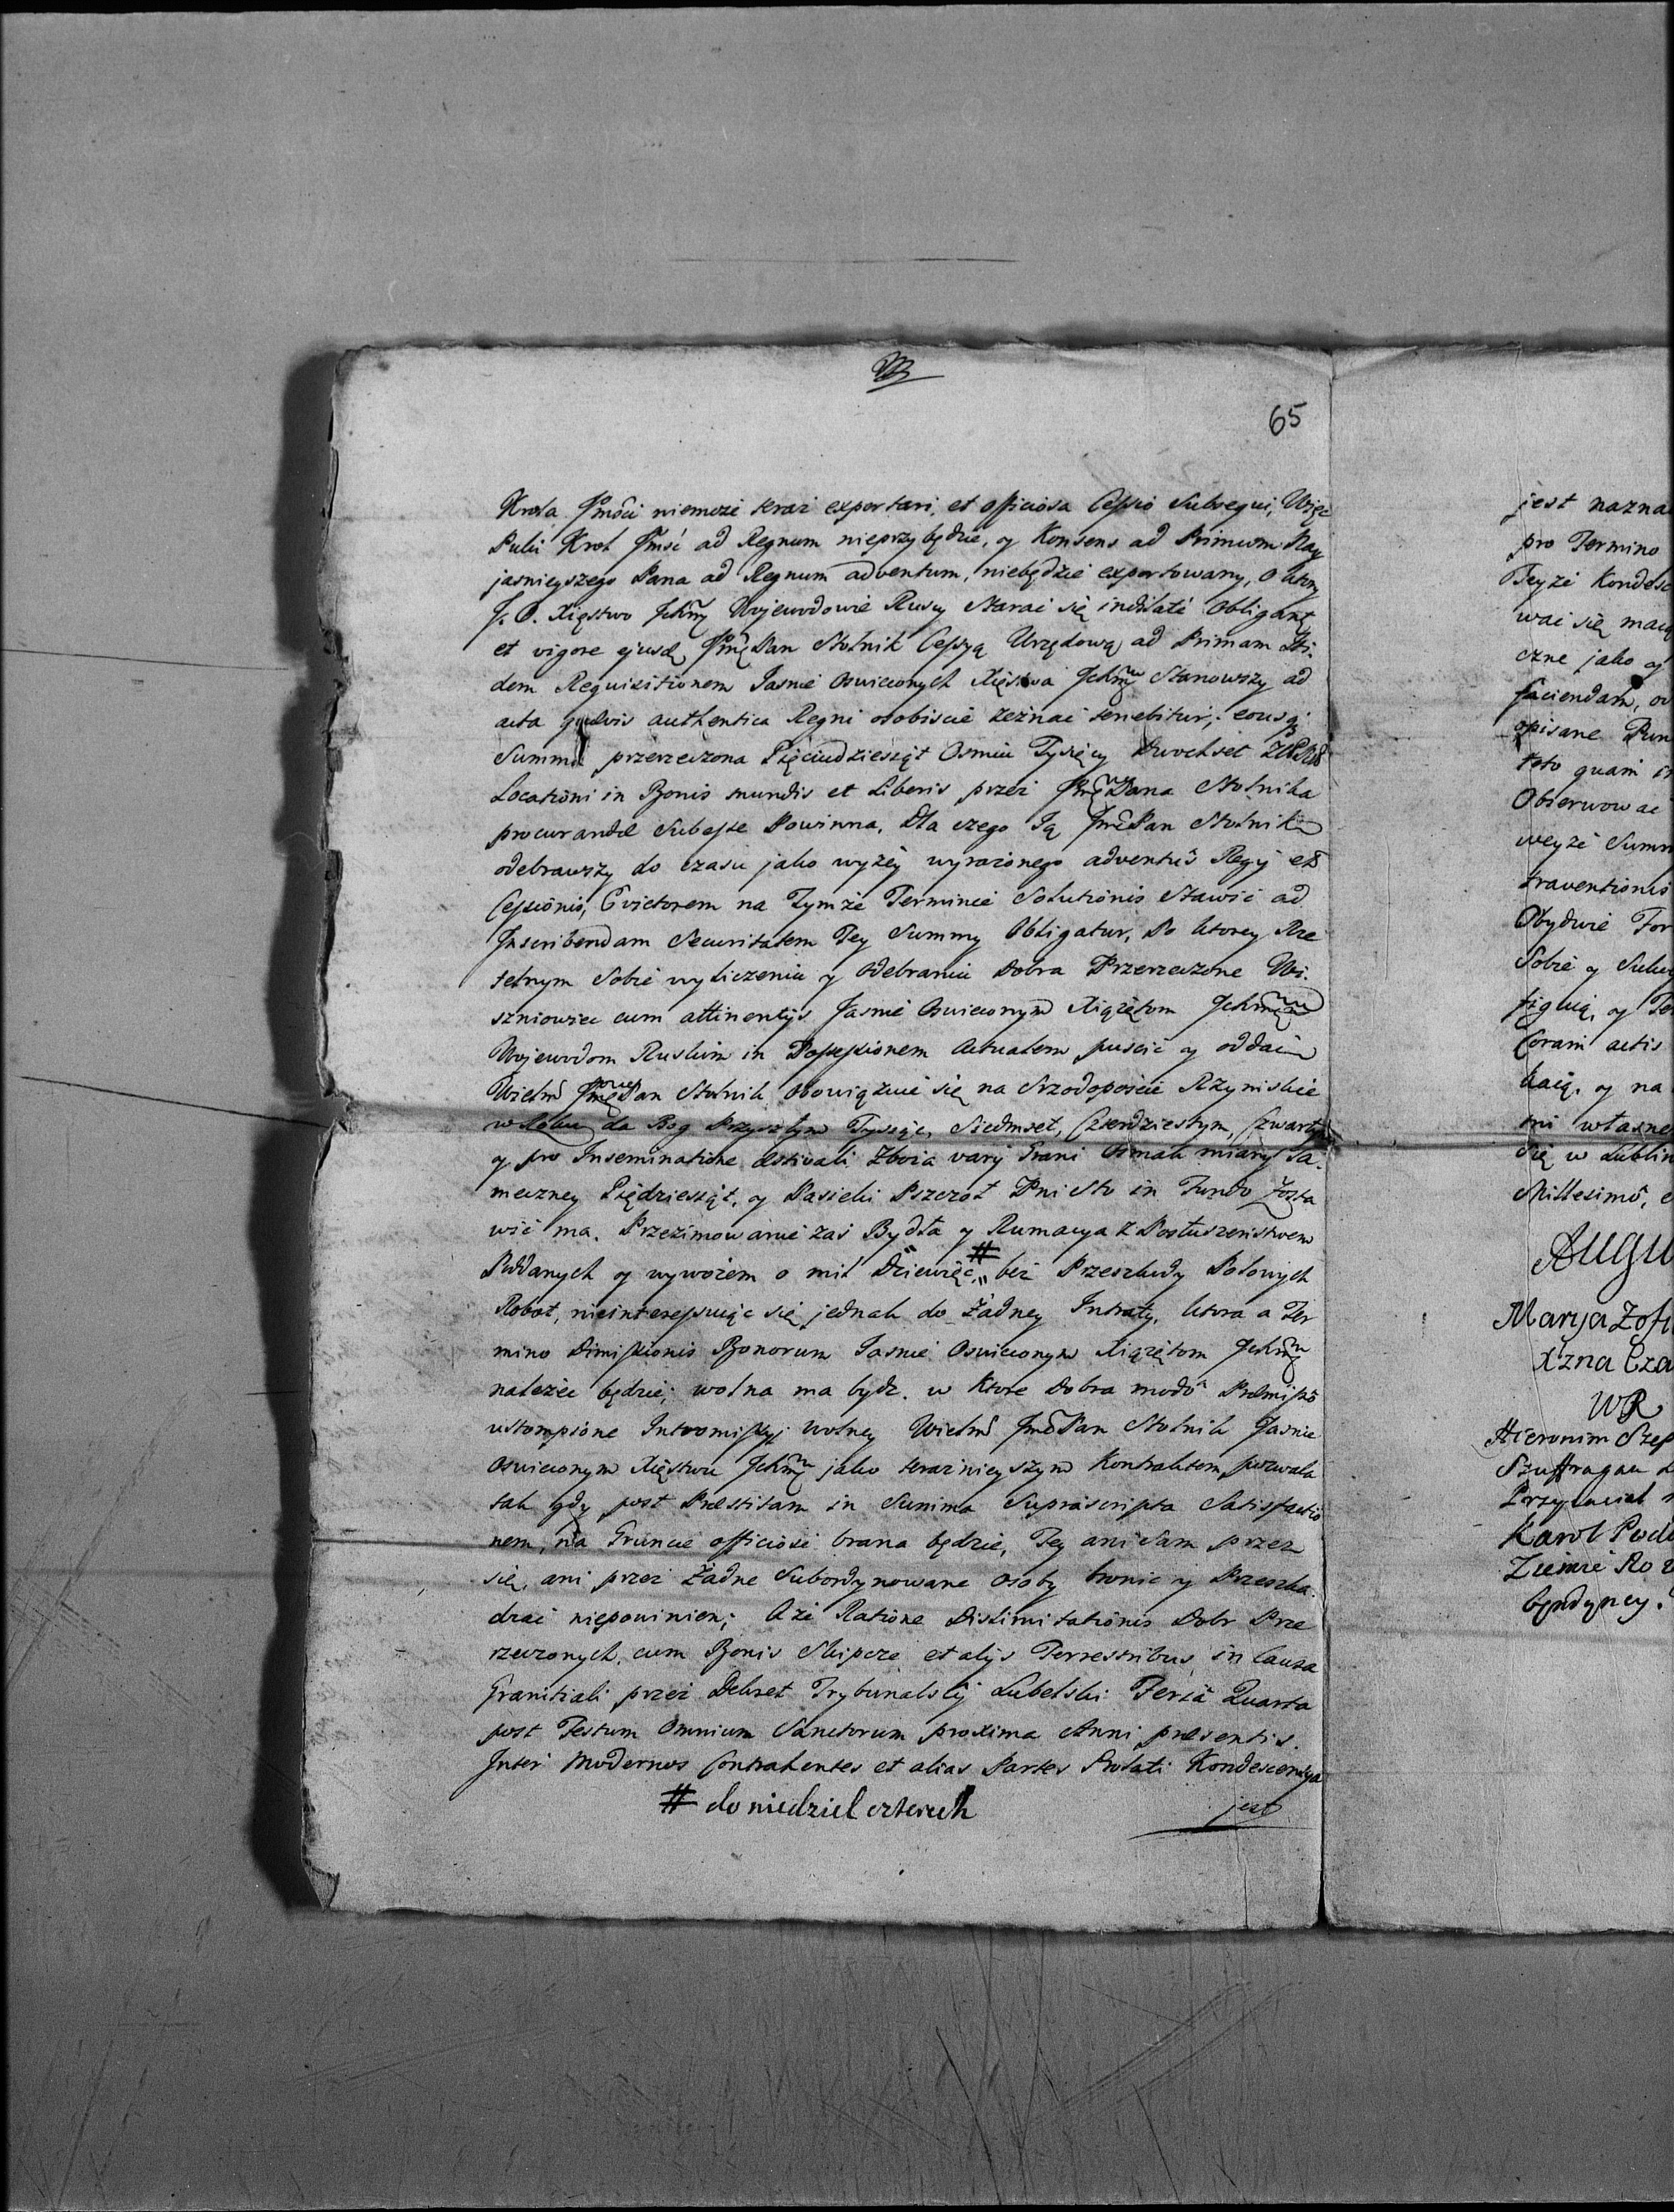 65
Krola Jmści niemoże teraz exportari, et officiosa Cessio Subsequi, Więc
Puki Krol Jmść ad Regnum nieprzybędzie, y Konsens ad Primum Nay
jasnieyszego Pana ad Regnum adventum, niebędzie exportowany, o ktory
J. O. Xięstwo Ichmć Wojewodowie Ruscy Starać się indilatè Obligant
et vigore ejusdē Jmć Pan Stolnik Cessyą Urzędową ad Primam Iti-
dem Requisitionem Jasnie Oswieconych Xięstwa Ichmć Stanowszy ad
acta quævis authentica Regni osobiscie zeznać tenebitur; eousq;
Summa przerzeczona Pięciudziesiąt Osmiu Tysięcy Dwochset
Locationi in Bonis mundis et Liberis przez Jmć Pana Stolnika
procurandæ Subesse Powinna, Dla czego Ją Jmć Pan Stolnik
odebrawszy do czasu jako wyżey wyrażonego adventûs Regij et
Cessionis, Evictorem na Tymże Terminie Solutionis Stawić ad
Inscribendam Securitatem Tey Summy Obligatur, Po ktorey Rze
telnym Sobie wyliczeniu y Odebraniu Dobra Przerzeczone Wi-
szniowiec cum attinentijs Jasnie Oswieconym Xiążętom Ichmć
Wojewodom Ruskim in Possessionem Actualem puscić y oddać
Wielm Jmć Pan Stolnik Obowiązuie się na Srzodoposcie Rzymskie
w Roku da Bog Przyszłym Tysiąc, Siedmset, Czterdziestym, Czwartym
y pro Inseminatione æstivali Zboża varij Grani Osmak miary Sa-
meczney Piędziesiąt, y Pasieki Pszczoł Pni Sto in Fundo Zosta
wić ma. Przezimowanie zaś Bydła y Rumacya z Posłuszeństwem
Poddanych y wywozem o mil Dziewięć # bez Przeszkody Polowych
Robot, nieinteressuiąc się jednak do Żadney Intraty, ktora a Ter
mino Dimissionis Bonorum Jasnie Oswieconym Xiążętom Ichmć
należeć będzie; wolna ma bydz. w Ktore Dobra modô Præmissô
ustompione Intromissyi wolney Wielm Jmć Pan Stolnik Jasnie
Oswieconym Xięstwu Ichmć jako teraznieyszym Kontraktem pozwala
tak gdy post Præstitam in Summa Suprascripta Satisfactio
nem, na Gruncie officiosè brana będzie, Tey ani Sam przez
się, ani przez Żadne Subordynowane Osoby bronić y Przeszka-
dzać niepowinien; A że Ratione Dislimitationis Dobr Prze
rzeczonych cum Bonis et alijs Terrestribus in Causa
Granitiali przez Dekret Trybunalski Lubelski Feria Quarta
post Festum Omnium Sanctorum proxima Anni præsentis.
Inter Modernos Contrahentes et alias Partes Prolati Kondescensya
# do niedziel czterech
jest
jest nazna
pro Termino
Teyże Kondesc
wać się maią
czne jako y
faciendam, 
opisane Pun
toto quam in
Obserwować
weyże Summ
traventionis
Obydwie
Sobie y
y
Coram actis
y na
mi własne
się w Lublin
Millesimô,
Augu
Marya Zofi
Xzna Cza
Hieronim Szep
Szuffragan
Przyiaciel
Karol
Ziemie